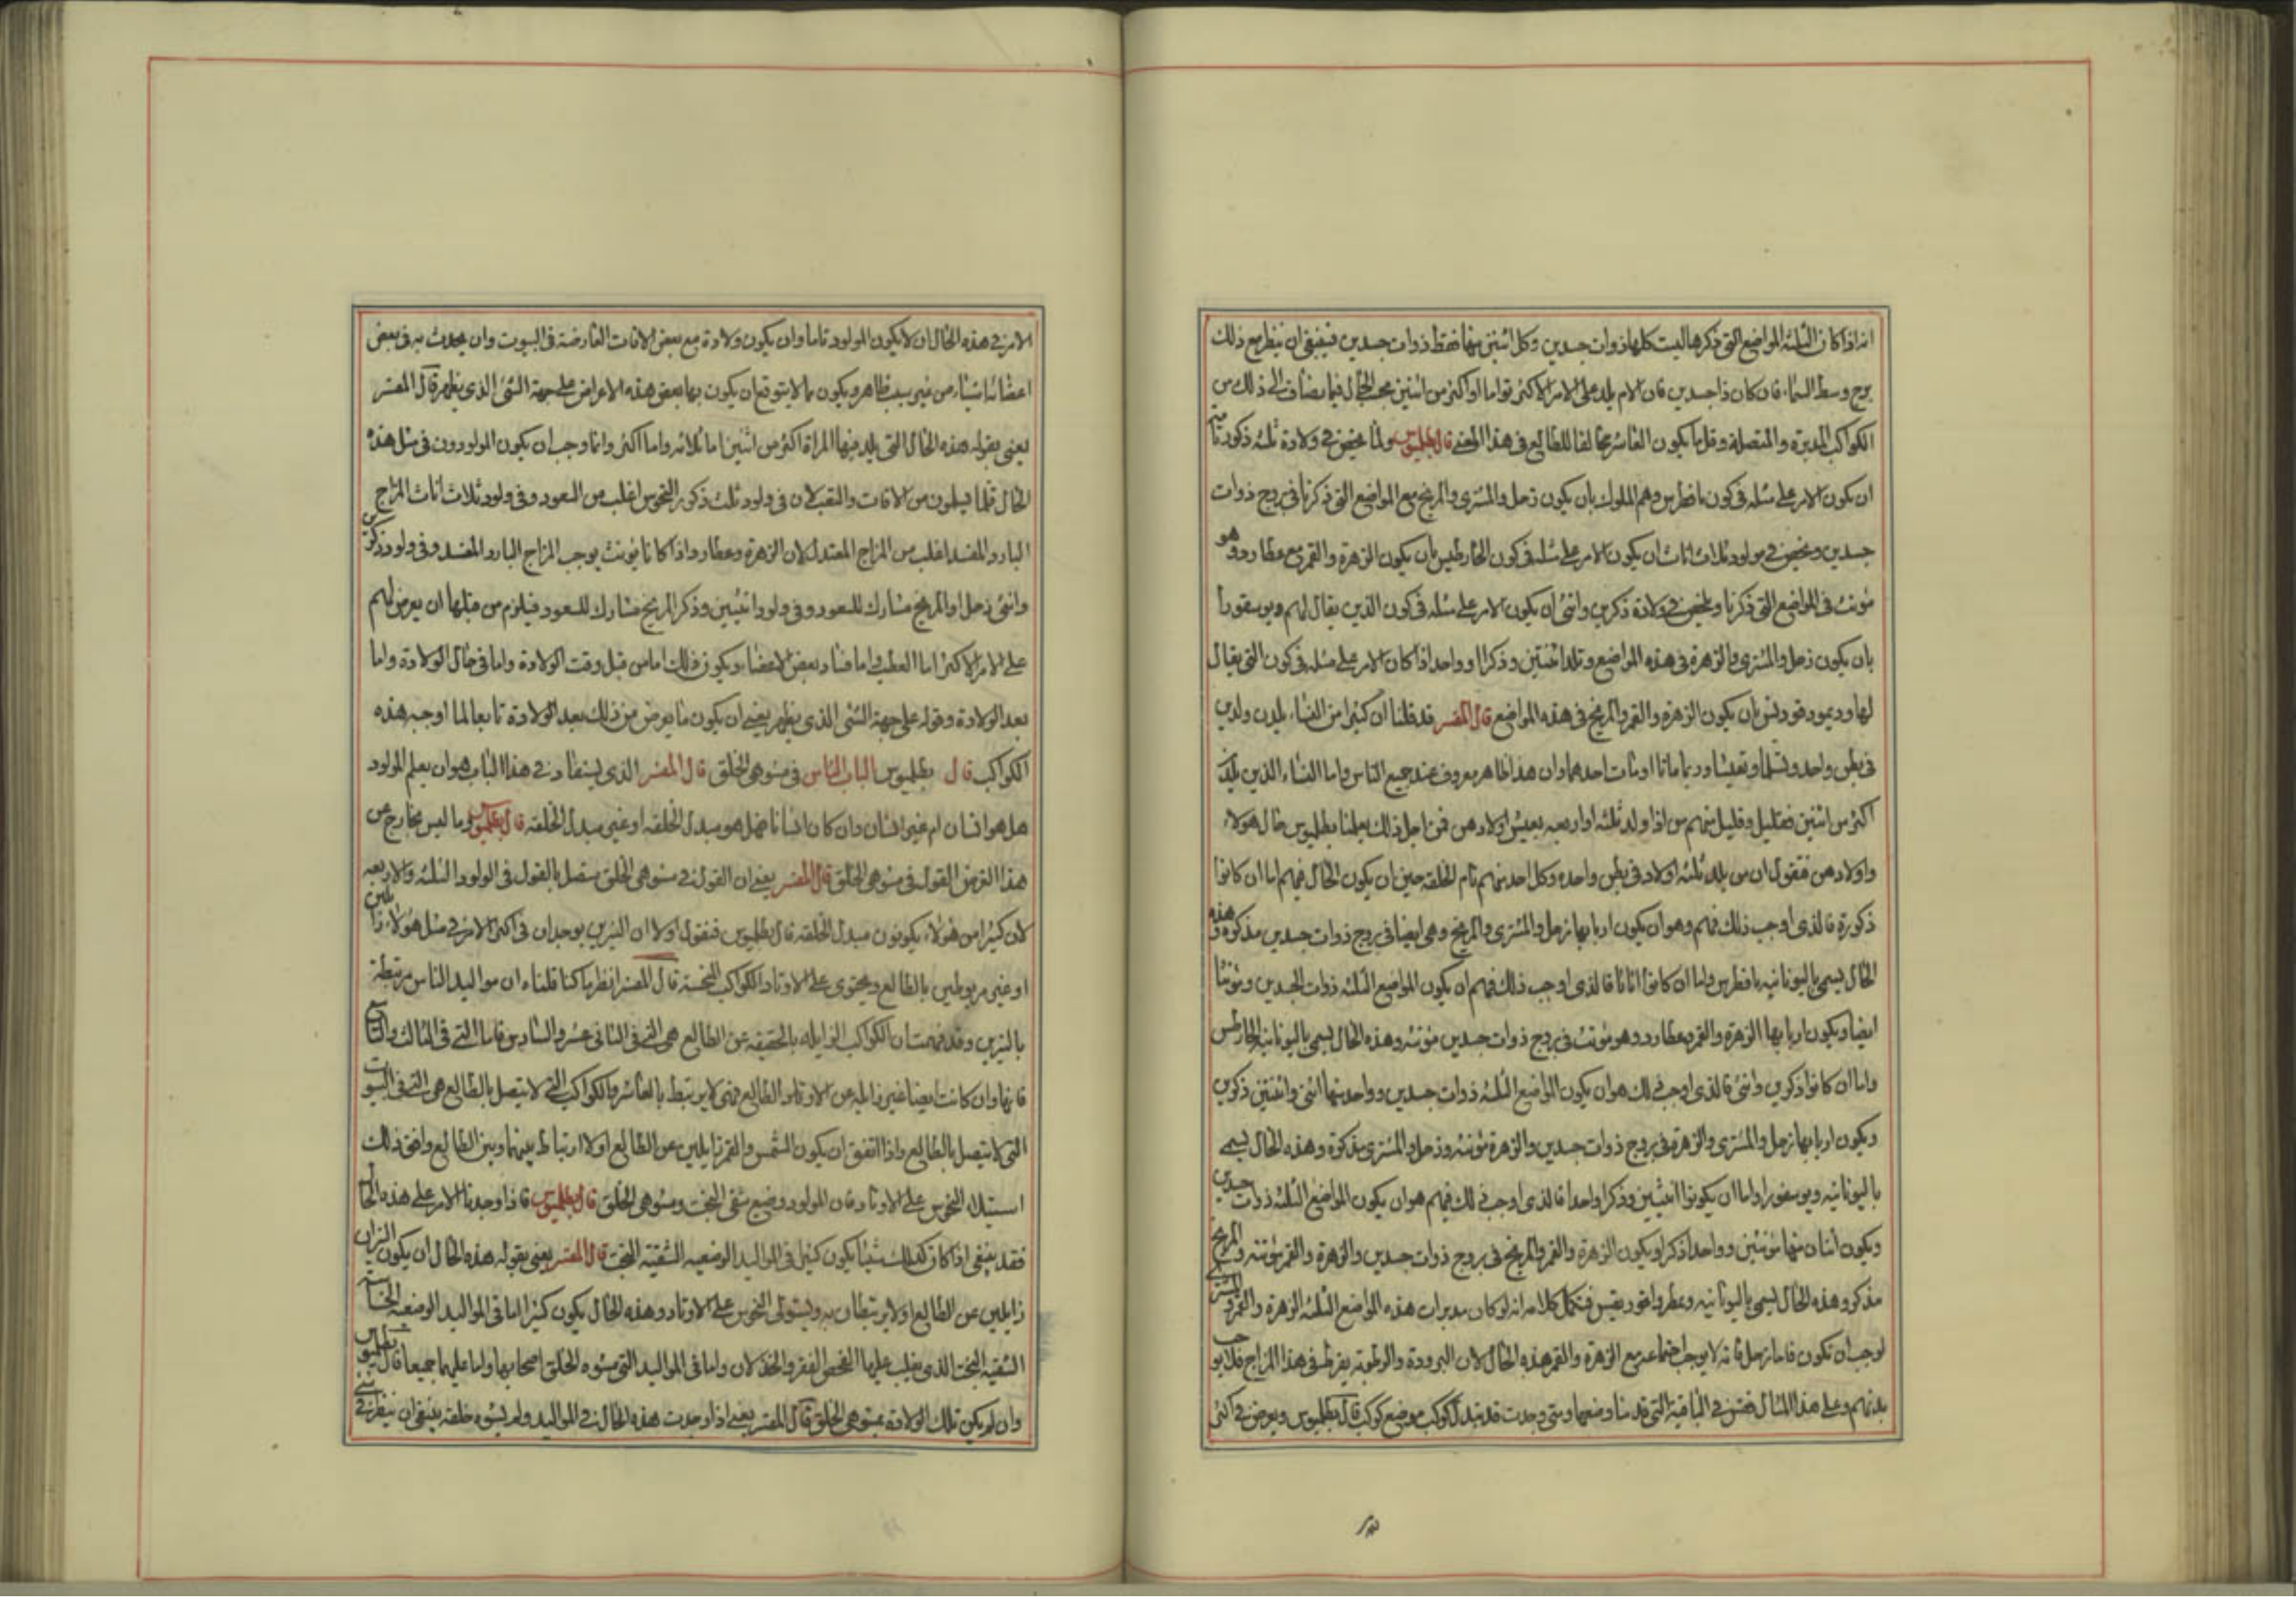 انه اذا كان الثلثه المواضع التي ذكرها ليست كلها ذوات جسدين وكل اثنتين منها فقط ذوات جسدين فينبغي ان ينظر مع ذلك
برج وسط السماء فان كان ذا جسدين فان الام يلد على الامر الاكثر تواما او اكثر من اثنين بحسب الحال فيما يضاف الى ذلك من
الكواكب المدبرة والمتصلة وقل ما يكون العاشر مخالفا للطالع في هذا المعنى قال بطلميوس ولما يخص في ولادة ثلثه ذكور
ان يكون الامر على مثله في كون افطرس وهم الملوك بان يكون زحل والمشتري والمريخ مع المواضع التي ذكرنا في بروج ذوات
جسدين ويخص في مولود ثلاث اناث ان يكون الامر على مثله في كون الخارطيس بان يكون الزهرة والقمر مع عطارد وهو
مؤنث في المواضع التي ذكرنا ويخص في ولادة ذكرين وانثى ان يكون الامر على مثله في كون الذين يقال لهم ديوسقورا
بان يكون زحل والمشتري والزهرة في هذه المواضع وتلد انثتين وذكرا واحدا اذا كان الامر على مثله في كون التي يقال
لها وديمود قورنس بان يكون الزهرة والقمر والمريخ في هذه المواضع قال المفسر قد قلنا ان كثيرا من النساء يلدن ولدين
في بطن واحد وقلما وتعيشا وربما ماتا او مات احدهما وان هذا ظاهر معروف عند جميع الناس واما النساء الذين يلدن
اكثر من اثنين فقليل وقليل منهم من اذا ولد ثلثه او اربعه يعيش اولادهن فمن اجل ذلك يعلمنا بطلميوس حال هولاء
واولادهن فنقول ان من يلد ثلثه اولاد في بطن واحده وكل احد منهم تام الخلقه حين ان يكون الحال فيهم اما ان كانوا
ذكورة فالذي اوجب ذلك فيهم وهو ان يكون اربابها زحل والمشتري والمريخ وهي ايضا في بروج ذوات جسدين مذكره وهذه
الحال يسمى باليونانيه افطرس واما ان كانوا اناثا فالذي اوجب ذلك فيهم ان يكون المواضع الثلثه ذوات الجسدين ومؤنثا
ايضا ويكون اربابها الزهرة والقمر وعطارد وهو مؤنث في بروج ذوات جسدين مؤنثه وهذه الحال يسمى باليونانيه الخارطس
واما ان كانوا ذكرين وانثى فالذي اوجب ذلك هو ان يكون المواضع الثلثه ذوات جسدين وواحد منها انثى واثنتين ذكرين
ويكون اربابها زحل والمشتري والزهرة في بروج ذوات جسدين والزهرة مؤنثه وزحل والمشتري مذكرة وهذه الحال يسمى
باليونانيه ديوسقورا واما ان يكونوا انثيين وذكرا واحدا فالذي اوجب ذلك فيهم هو ان يكون المواضع الثلثه ذوات جسدين
ويكون اثنان منها مؤنثين وواحد ذكرا ويكون الزهرة والقمر والمريخ في بروج ذوات جسدين والزهرة والقمر مؤنثه والمريخ
مذكر وهذه الحال يسمى باليونانيه فتكمل كلامه انه لو كان مدبرات هذه المواضع الثلثه الزهرة والقمر والمشتري
لوجب ان تكون فاما زحل فانه لا يوجب اجتماعه مع الزهرة والقمر هذه الحال لان البرودة والرطوبة يفرط في هذا المزاج فلا
بدنهم وعلى هذا المثال فقس في الباقية التي قدمنا وصفها ومتى وجدت قد تبدل كوكب موضع كوكب قال بطلميوس ويعرض في اكثر
الامر في هذه الحال ان لا يكون المولود تاما وان يكون ولادة مع بعض الافات العارضة في البيوت وان يحدث به في بعض
اعضائه اشياء من غير سبب ظاهر ويكون ما لا يتوقع ان يكون بها بعض هذه الاعراض على جهة الشئ الذي يظهر قال المفسر
يعني بقوله هذه الحال التي يلد فيها المراة اكثر من اثنين اما ثلاثه واما اكثر وانما وجب ان يكون المولودون في مثل هذه
الحال قلما يسلمون من الافات والتعب لان في ولود ثلث ذكور النحوس اغلب من السعود وفي ولود ثلاث اناث المزاج
البارد المفسد اغلب من المزاج المعتدل لان الزهرة وعطارد اذا كانا مؤنث يوجب المزاج البارد المفسد وفي ولود ذكرين
وانثى زحل او المريخ مشارك للسعود وفي ولود انثيين وذكر المريخ مشارك للسعود فيلزم من قبلها ان يعرض لهم
على الامر الاكثر اما العطب واما فساد بعض الاعضاء ويكون ذلك اما من قبل وقت الولادة واما في حال الولادة واما
بعد الولادة وقوله على جهة الشئ الذي يظهر يعني ان يكون ما يعرض من ذلك بعد الولادة تابعا لما اوجبه هذه
الكواكب قال بطلميوس الباب الثامن في مشوهي الخلق قال المفسر الذي يستفاد في هذا الباب هو ان يعلم المولود
هل هو انسان ام غير انسان وان كان انسانا فهل هو مبدل الخلقه او غير مبدل الخلقه قال بطلميوس وما ليس بخارج عن
هذا الغرض القول في مشوهي الخلق قال المفسر يعني ان القول في مشوهي الخلق متصل بالقول في الولود الثلثه والاربعه
لان كثيرا من هولاء يكونون مبدل الخلقه قال بطلميوس فنقول اولا ان النيرين يوجدان في اكثر الامر في مثل هولاء زائلين
او غير مربوطين بالطالع ويحتوي على الاوتاد الكواكب النحسة قال المفسر انظر ما كنا قلناه ان مواليد الناس مرتبطة
بالنيرين وقد فهمت ان الكواكب الزايله بالحقيقه عن الطالع هي التي في الثاني عشر والسادس فاما التي في الثالث والتاسع
فانها وان كانت ايضا غير زايله عن الاوتاد والطالع فهي لا يرتبط بالعاشر والكواكب التي لا يتصل بالطالع هي التي في البيوت
التي لا يتصل بالطالع واذا اتفق ان يكون الشمس والقمر زايلين عن الطالع او لا ارتباط بينهما وبين الطالع وافق ذلك
استيلاء النحوس على الاوتاد فان المولود وضيع شقي البخت ومشوهي الخلق قال بطلميوس فاذا وجدنا الامر على هذه الحال
فقد ينبغي اذا كان كذلك يكون كثير في المواليد الوضعيه الشقية البخت قال المفسر يعني بقوله هذه الحال ان يكون النيران
زايلين عن الطالع او لا يرتبطان به ويستولى النحوس على الاوتاد وهذه الحال يكون كثيرا اما في المواليد الوضعيه
الشقيه البخت الذي يغلب عليها الفحص الفقر والخذلان واما في المواليد التي مشوه الخلق اصحابها واما عليهما جميعا قال بطلميوس
وان لم يكن تلك الولادة بمشوهي الخلق قال المفسر يعني اذا وجدت هذه الحال في المواليد ولم يشوه خلقه ينبغي ان ينظر في